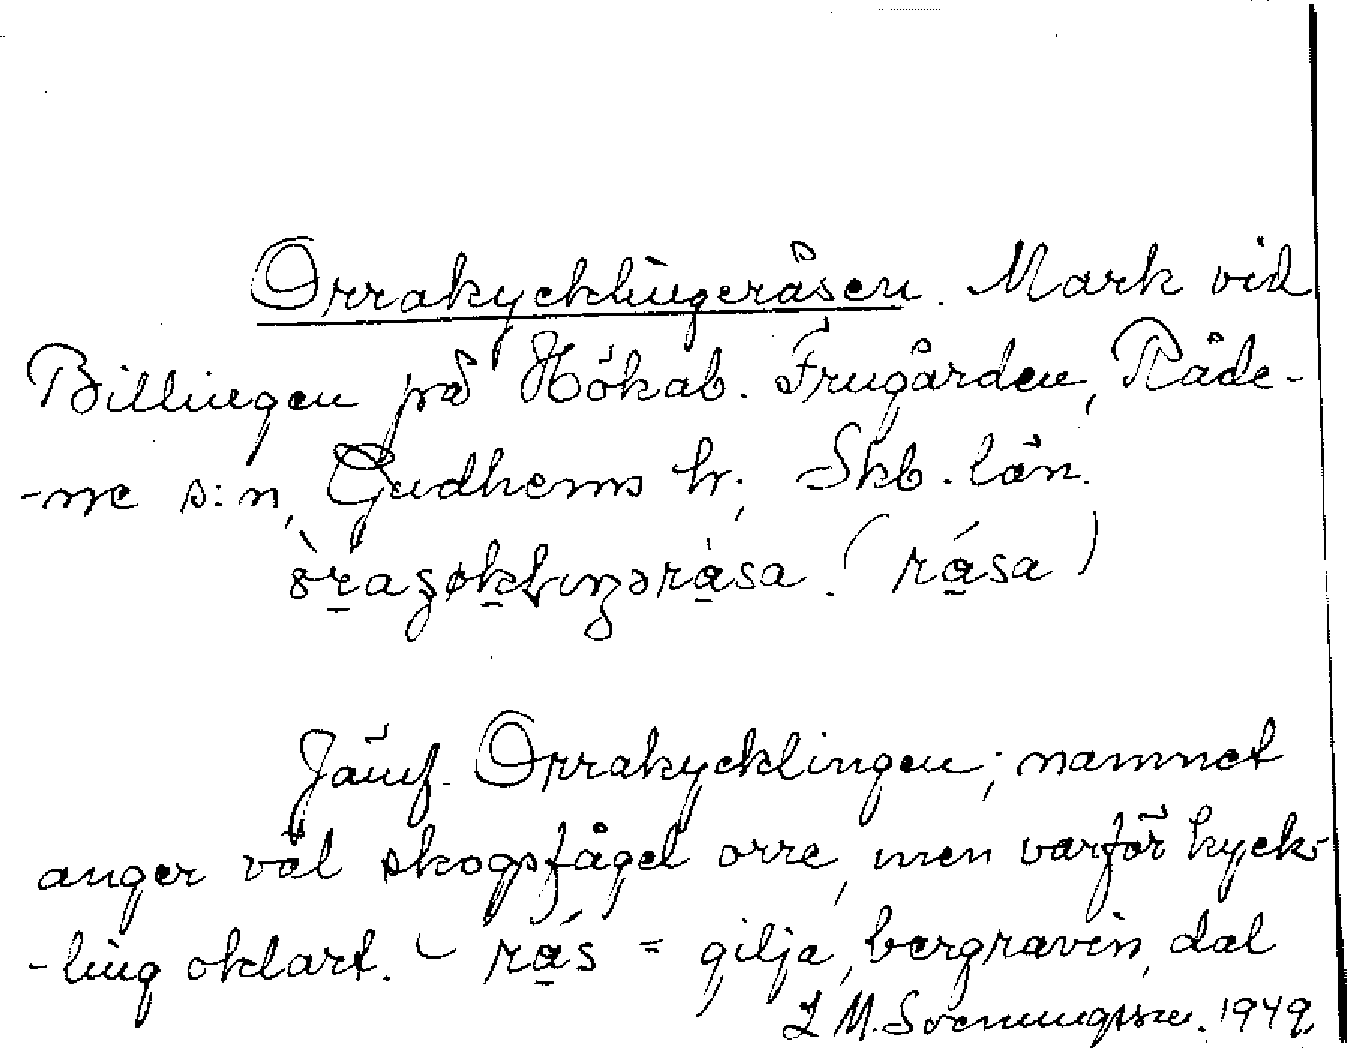 Orrakycklingeråsen. Mark vid
Billingen på Hökab. Frugården, Råde-
-ne s:n, Gudhems hr, Skb. län.
(råsa)
Jämf. Orrakycklingen; namnet
anger väl skogsfågel orre, men varför kyck-
-ling oklart. – rås = gilja, bergravin, dal
L M. Svenungsson. 1949